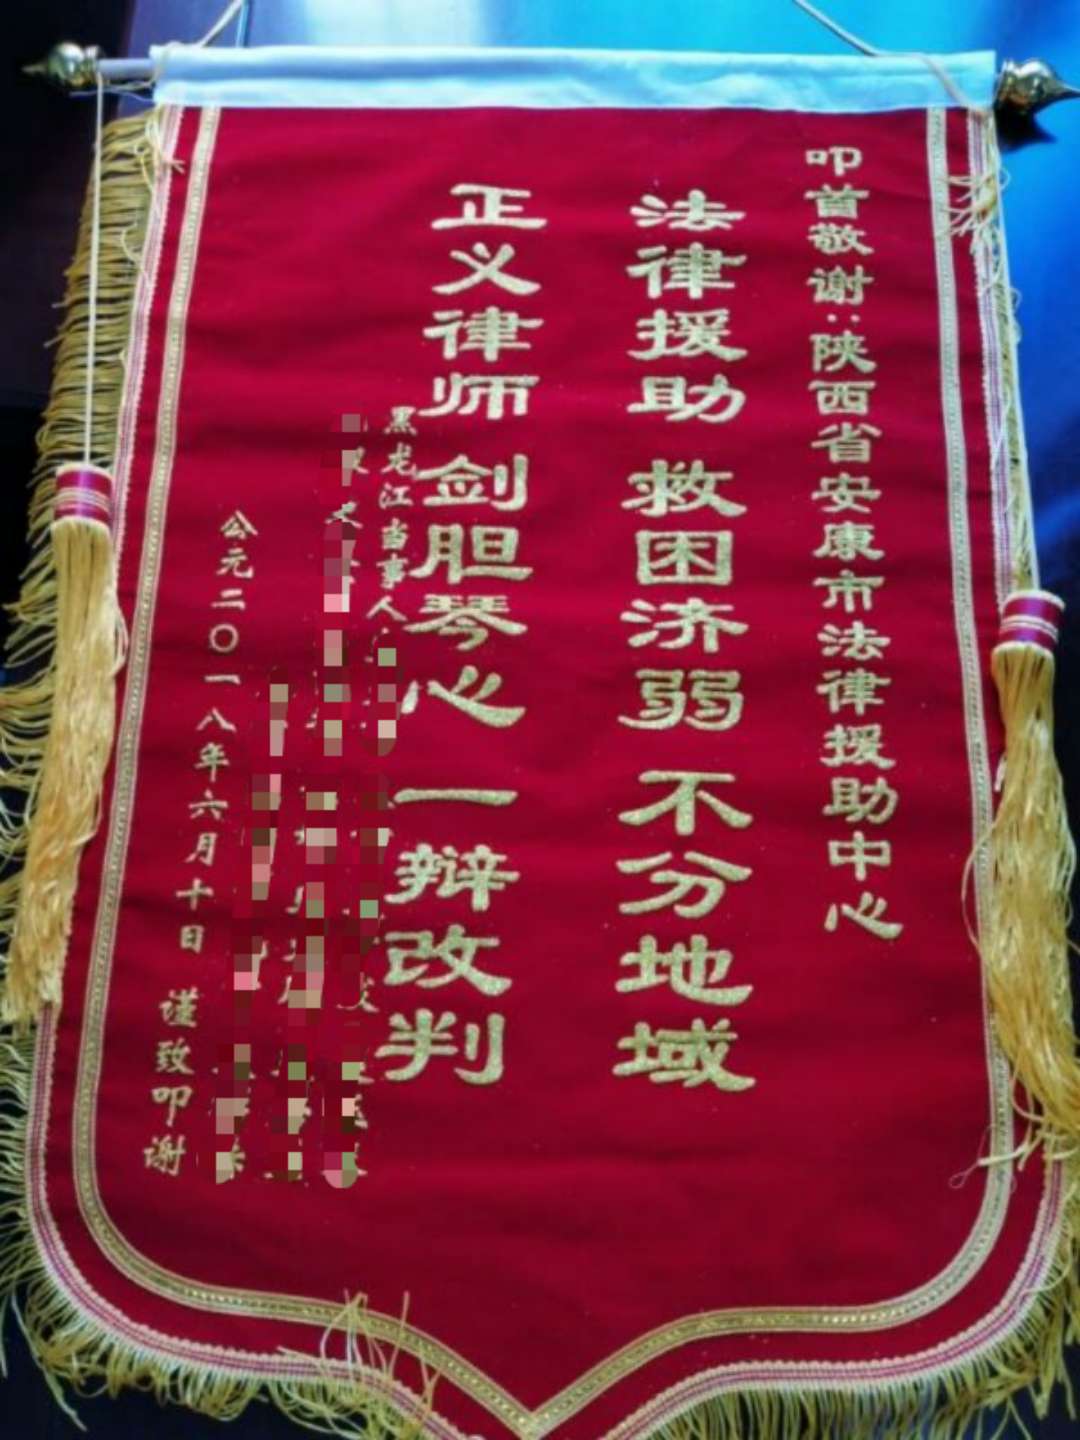 叩首敬谢:陕西省安康市法律援助中心
法律援助 救困济弱 不分地域
正义律师 剑胆琴心 一辩改判
黑龙江当事人
公元二〇一八年六月十日 谨致叩谢